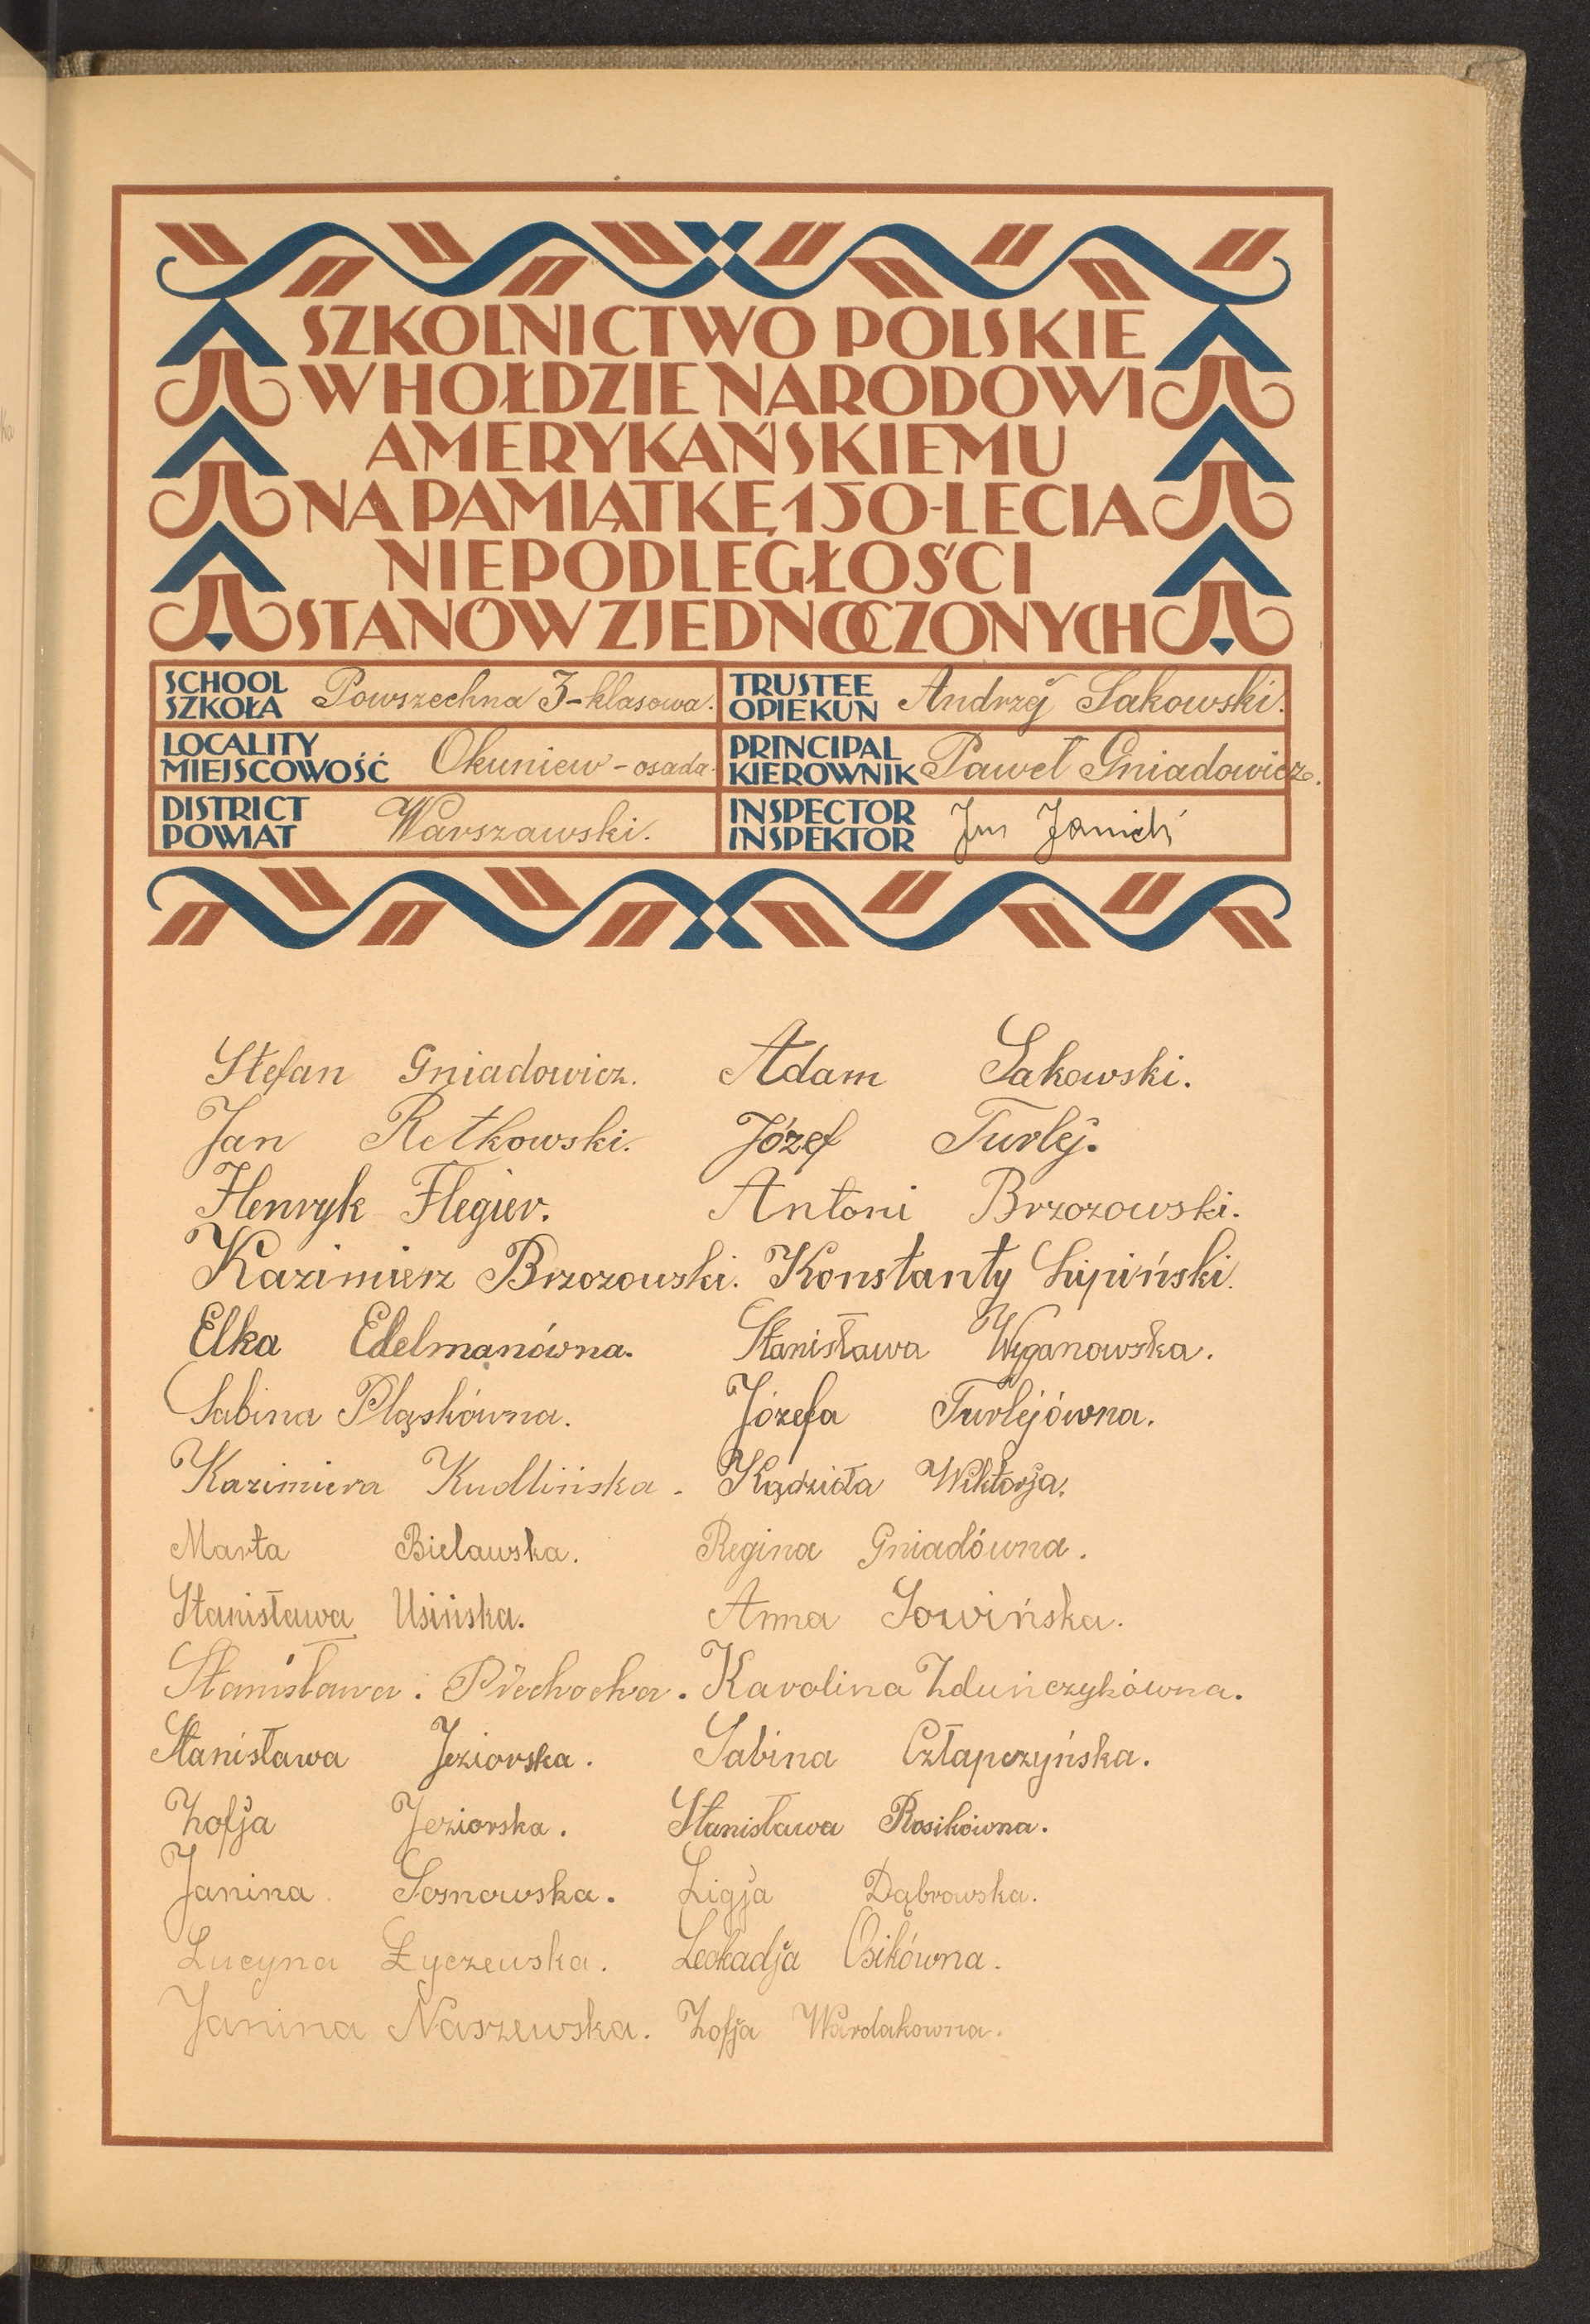 SZKOLNICTWO POLSKIE
W HOŁDZIE NARODOWI
AMERYKAŃSKIEMU
NA PAMIĄTKĘ 150-LECIA
NIEPODLEGŁOŚCI
STANÓW ZJEDNOCZONYCH
SCHOOL SZKOŁA Powszechna 3-klasowa.
TRUSTEE OPIEKUN Andrzej Sakowski.
LOCALITY MIEJSCOWOŚĆ Okuniew - osada.
PRINCIPAL KIEROWNIK Paweł Gniadowicz.
DISTRICT POWIAT Warszawski.
INSPECTOR INSPEKTOR
Stefan Gniadowicz. Adam Sakowski.
Jan Retkowski. Józef Turlej.
Henryk Flegier. Antoni Brzozowski.
Kazimierz Brzozowski. Konstanty Lipiński.
Elka Edelmanówna. Stanisława Wyganowska.
Sabina Pląskówna. Józefa Turlejówna.
Kazimiera Kudlińska. Kądzioła Wiktorja.
Marta Bielawska. Regina Gniadówna.
Stanisława Usińska. Anna Sowińska.
Stanisława. Karolina Zduńczykówna.
Stanisława Jeziorska. Sabina Człapczyńska.
Zofja Jeziorska. Stanisława Rosikówna.
Janina Sosnowska. Ligja Dąbrowska.
Lucyna Łyczewska. Leokadja Osikówna.
Janina Naszewska. Zofja Wardakowna.